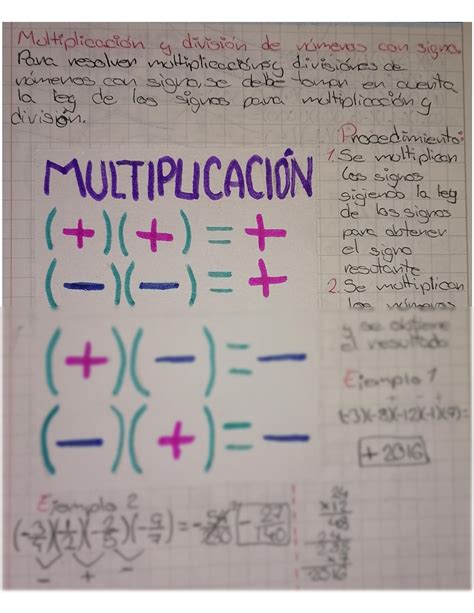 Multiplicación y división de números con signo.
Para resolver multiplicaciones y divisiones de
números con signo, se debe tomar en cuenta
la ley de los signos para multiplicación y
división.
Procedimiento:
1. Se multiplican
los signos
sigiendo la ley
de los signos
para obtener
el signo
resutante
2. Se multiplican
los números
y se obtiene
el resultado
MULTIPLICACIÓN
(+)(+)=+
(−)(−)=+
(+)(−)=−
(−)(+)=−
Ejemplo 1
+2016
Ejemplo 2
− + −
24
2016